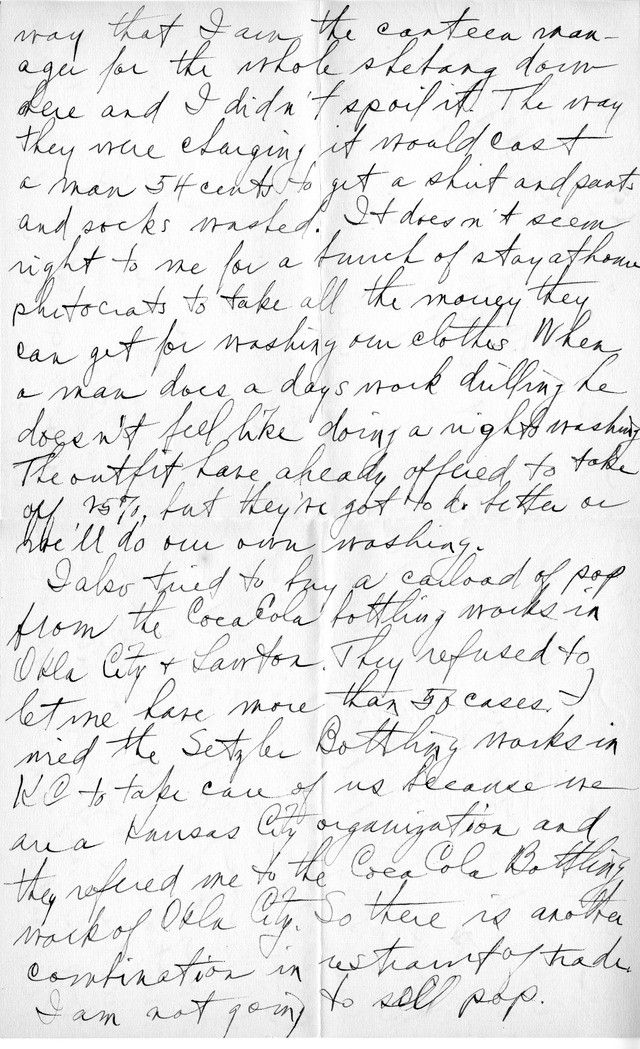 way that I am the canteen man-
ager for the whole shebang down
here and I didn't spoil it. The way
they were charging it would cost
a man 54 cents to get a shirt and pants
and socks washed. It doesn't seem
right to me for a bunch of stay at home
plutocrats to take all the money they
can get for washing our clothes. When
a man does a days work drilling he
doesn't feel like doing a right washing
The outfit have already offered to take
off 25%, but they've got to do better or
we'll do our own washing.
I also tried to buy a carload of pop
from the CocaCola bottling works in
Okla City + Lawton. They refused to
let me have more than 50 cases. I
wired the Setzler Bottling works in
KC to take care of us because we
are a Kansas City organization and
they refered me to the Coca Cola Bottling
work of Okla City. So there is another
combination in restraint of trade.
I am not going to sell pop.